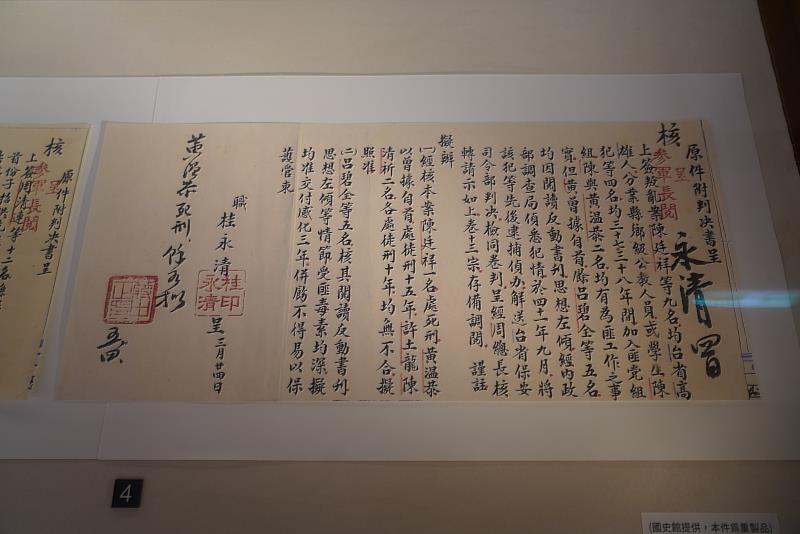 原件附判決書呈
核
呈
參軍長閱
永清 閱
上簽叛亂案陳廷祥等九名均台省高
雄人分業縣鄉級公教人員或學生陳
犯等四名均三十七三十八年間加入匪黨組
組陳與黃溫恭二名均有為匪工作之事
實但黃曾據自首嗣呂碧全等五名
均因閱讀反動書刊思想左傾經內政
部調查局偵悉犯情於四十一年九月將
該犯等先後逮捕偵辦解送台省保安
司令部判決檢同卷判呈經周總長核
轉請示如上卷十三宗存備調閱 謹註
擬辦
(一)經核本案陳廷祥一名處死刑黃溫恭
以曾據自首處徒刑十五年許土龍陳
清祈二名各處徒刑十年均無不合擬
照准
(二)呂碧全等五名核其閱讀反動書刊
思想左傾等情節受匪毒素均深擬
均准交付感化三年併勵不得易以保
護管束
職 桂永清 呈 三月廿四日
桂印永清
黃溫恭死刑餘如擬
核
呈
參軍長閱
原件附判決書呈
4
(國史館提供，本件為重製品)